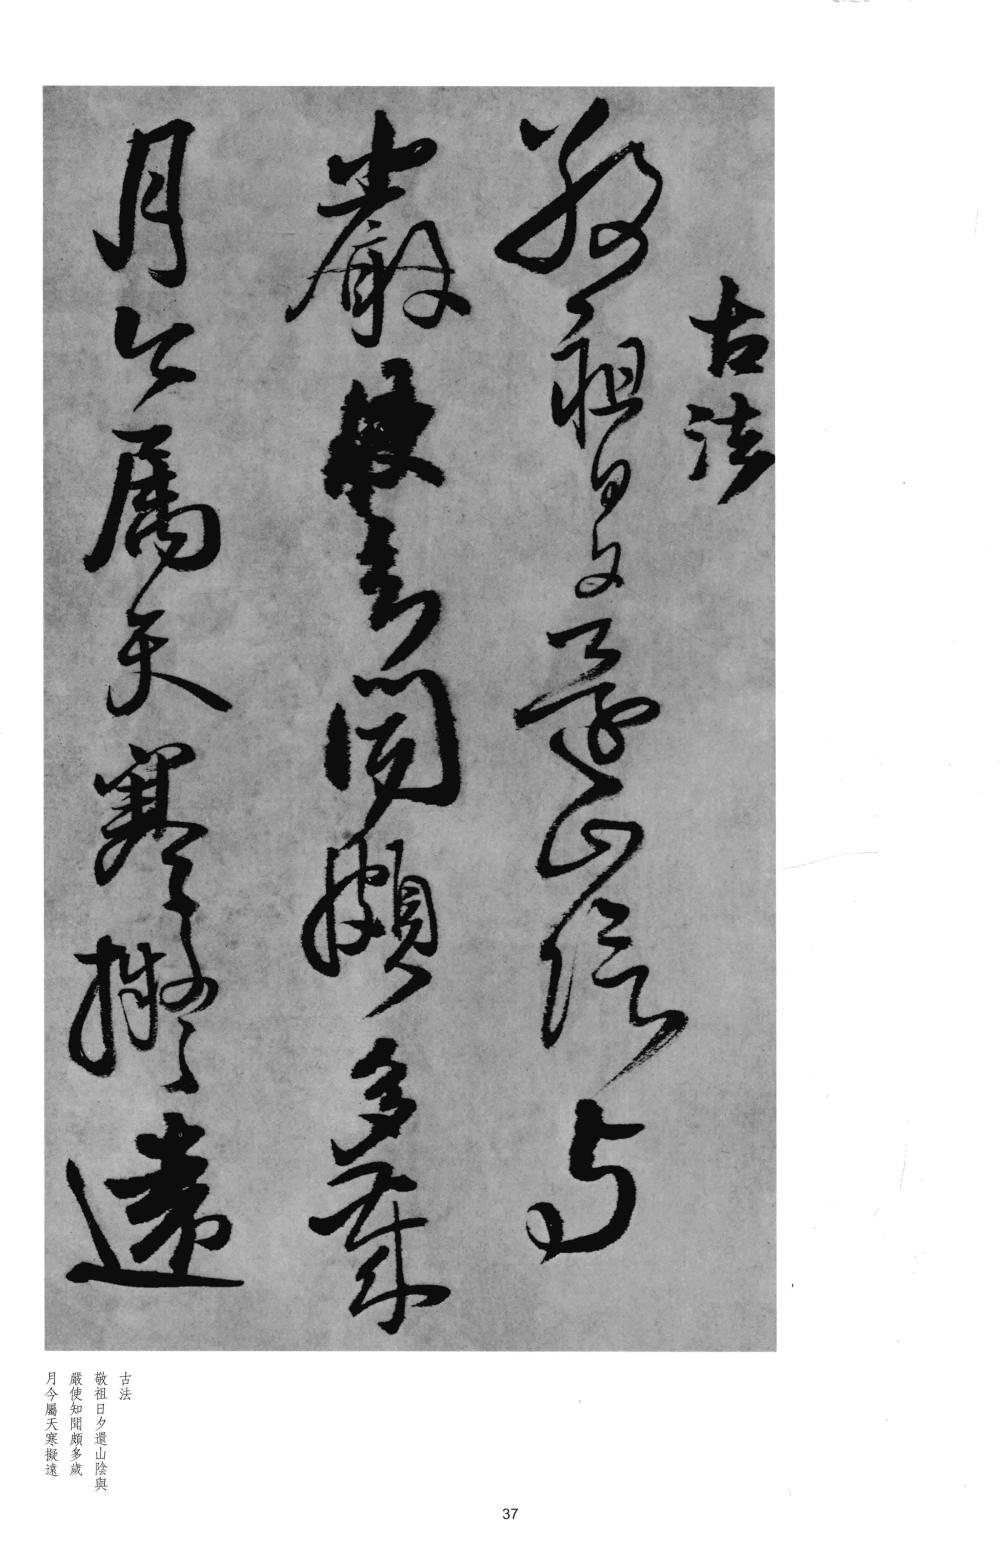 古法
敬祖日夕還山陰與
嚴使知聞頗多歲
月今屬天寒擬遠
古法
敬祖日夕還山陰與
嚴使知聞頗多歲
月今屬天寒擬遠
37